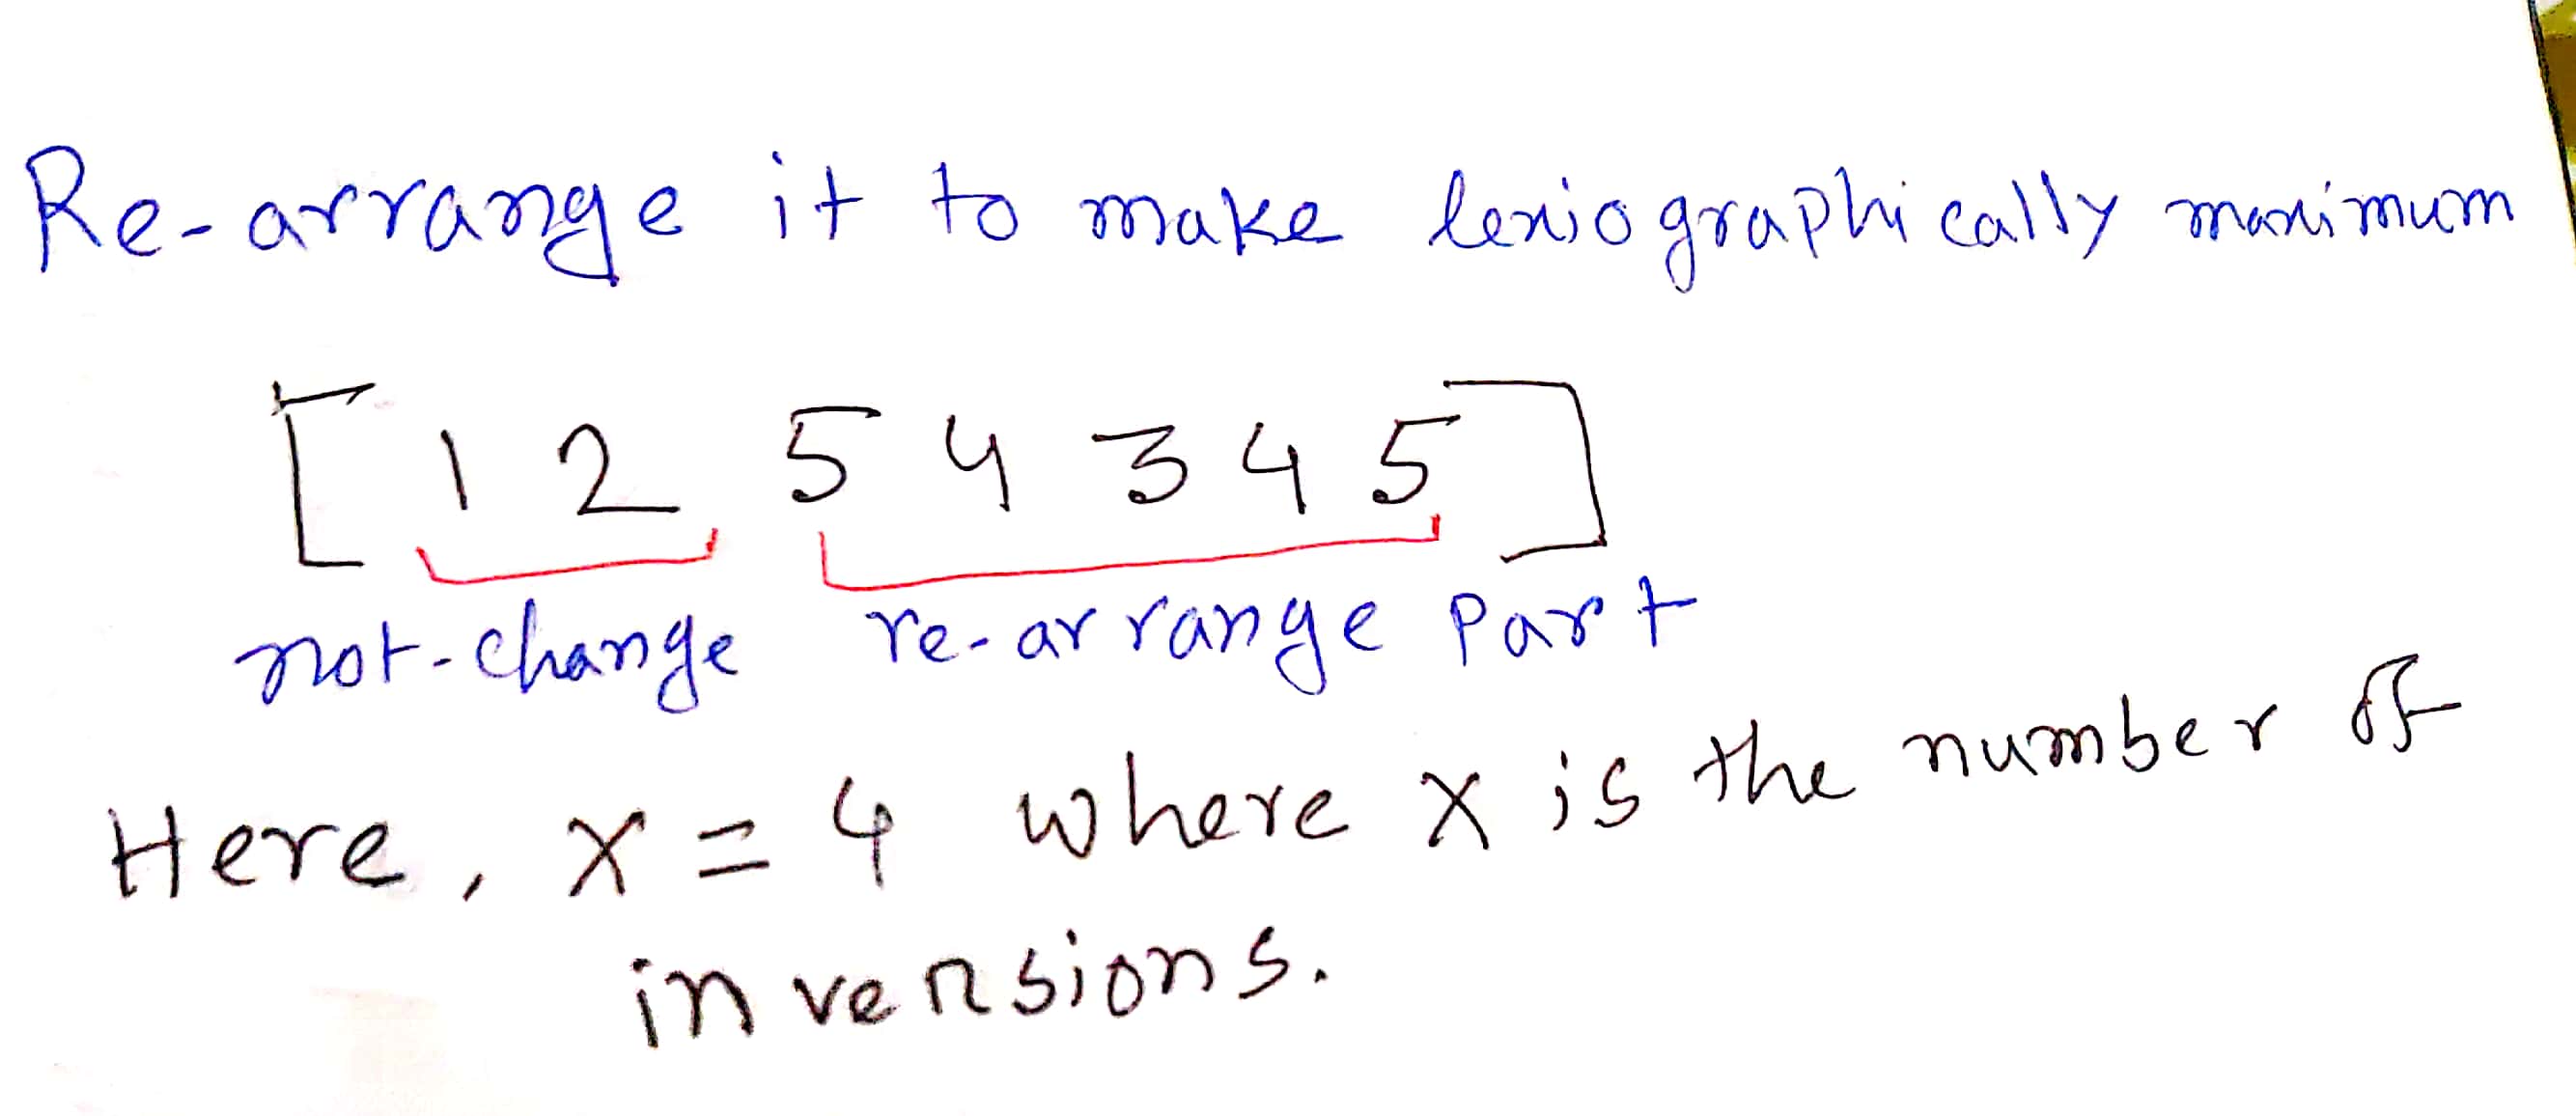 Re-arrange it to make lexiographically maximum
[ 1 2 5 4 3 4 5 ]
not-change re-arrange part
Here, x = 4 where x is the number of
inversions.